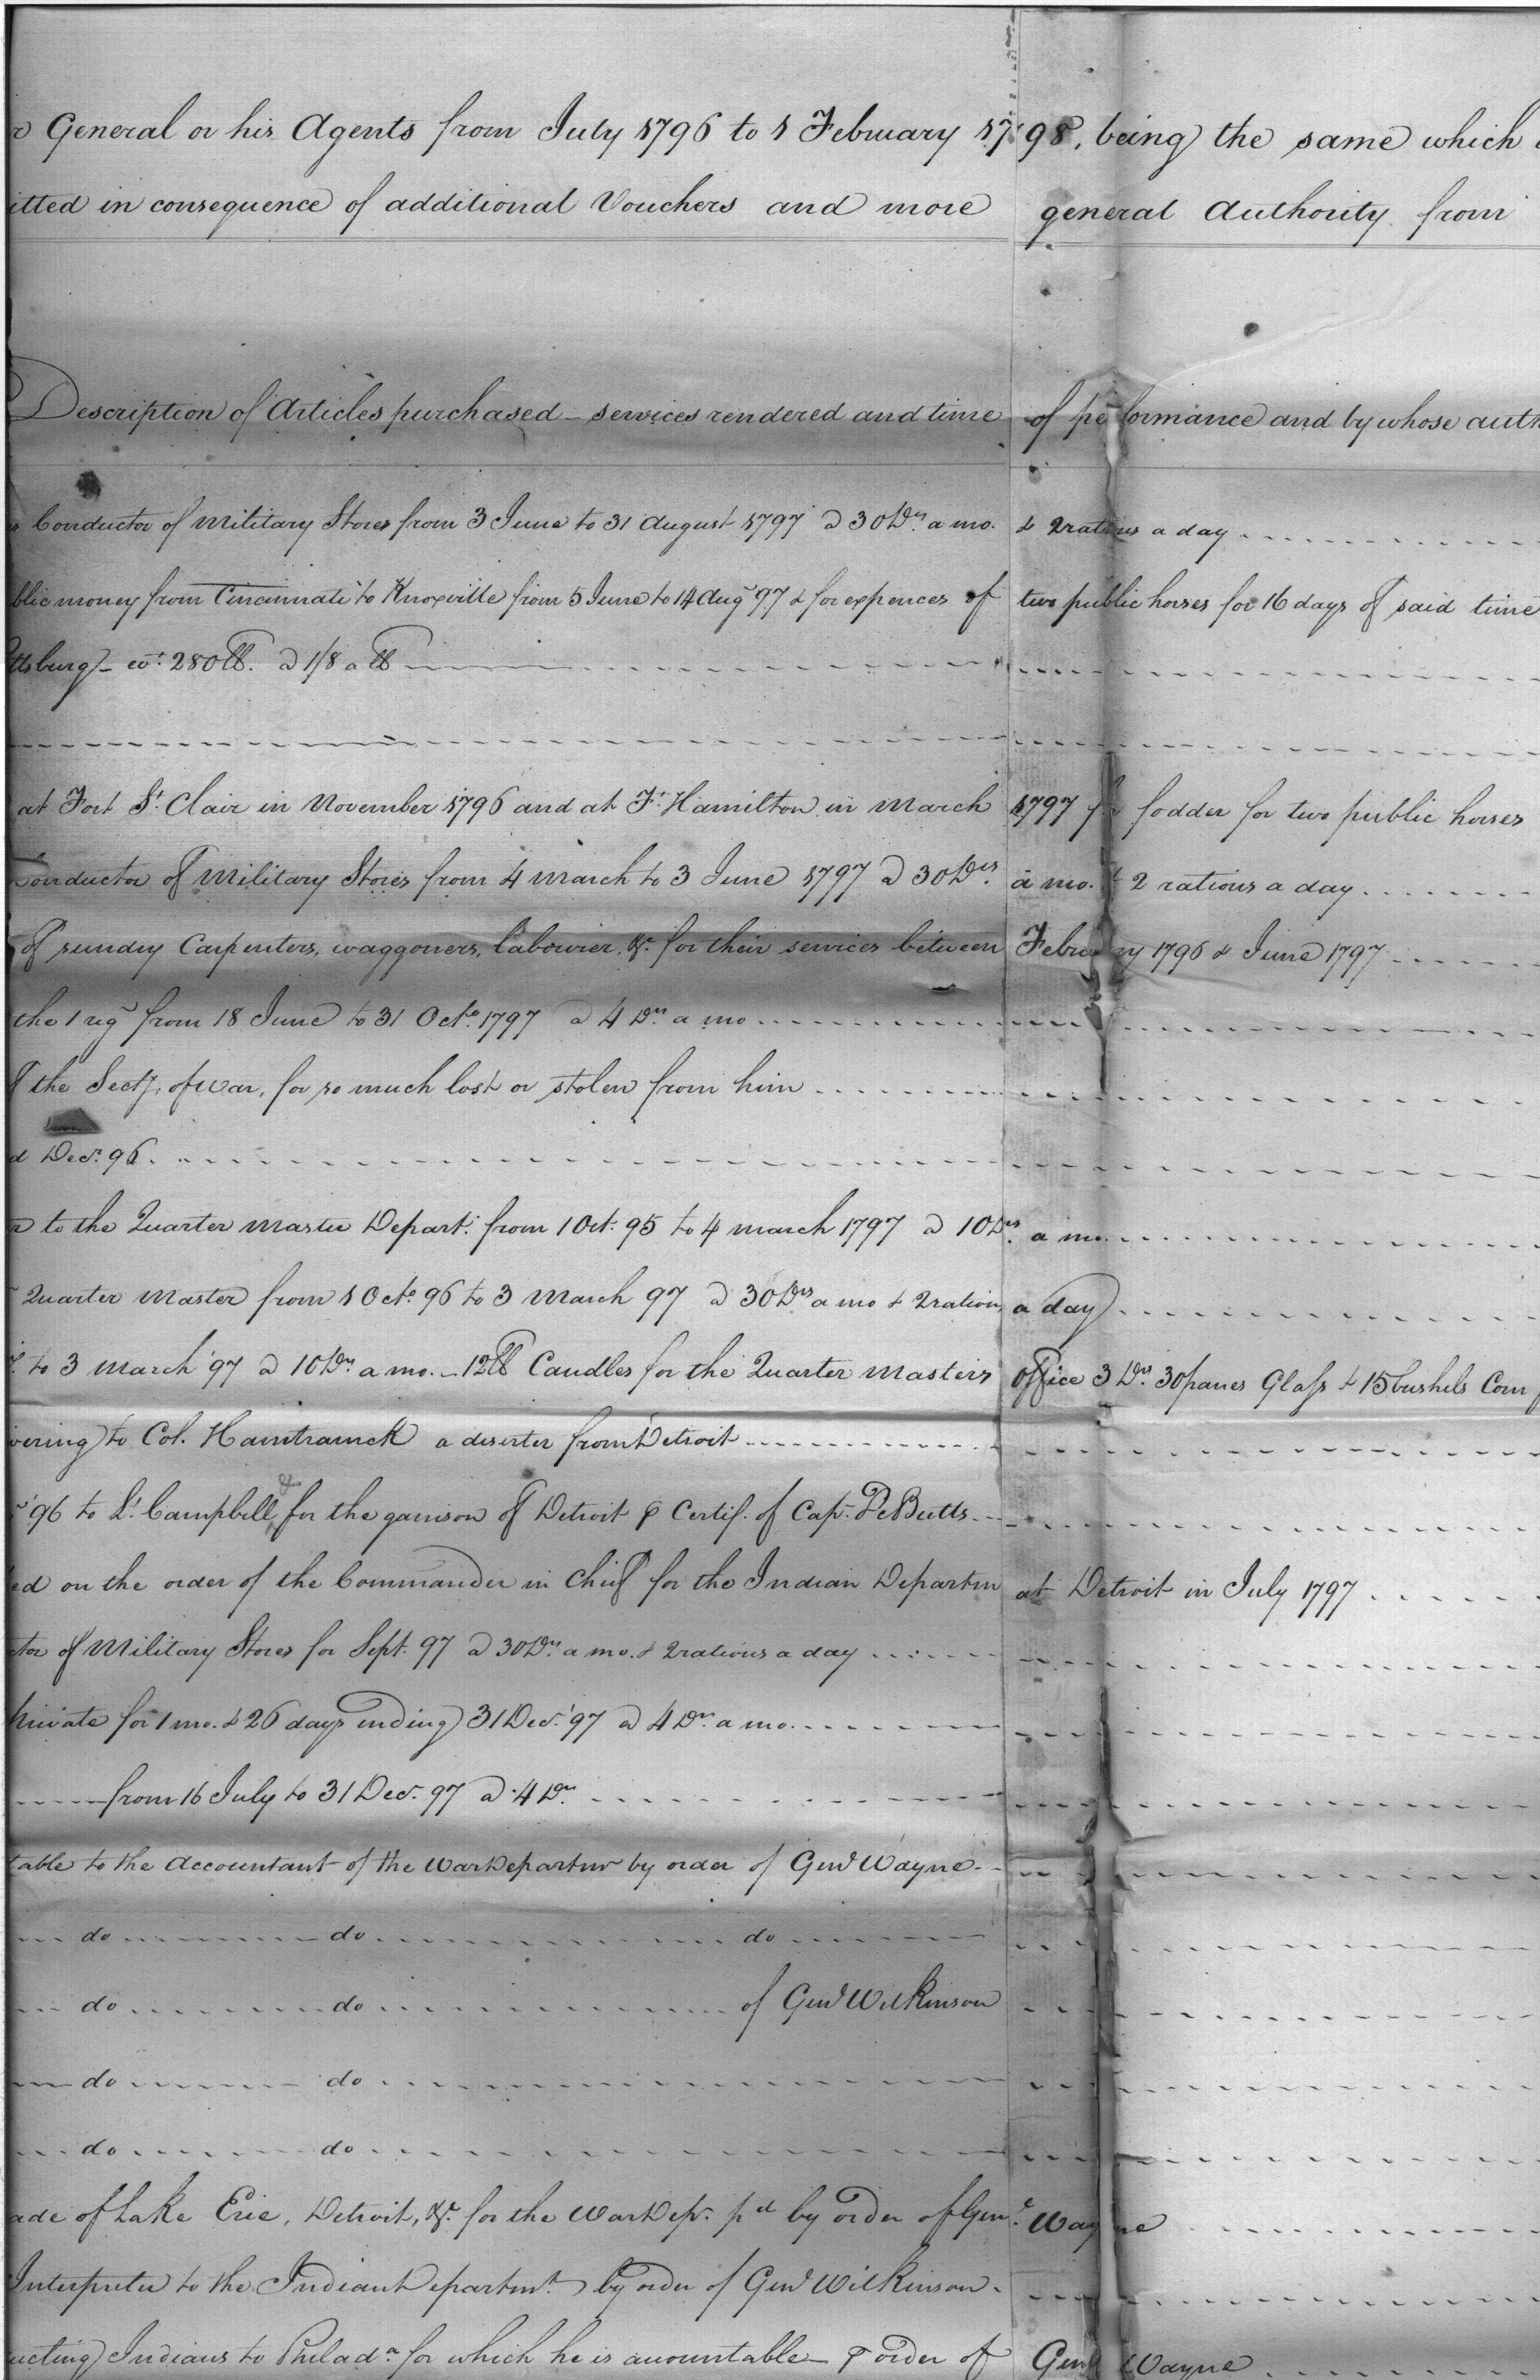 General or his Agents from July 1796 to 1 February 1798, being the same which
itted in consequence of additional Vouchers and more general Authority from
Description of Articles purchased - services rendered and time of performance and by whose auth
Conductor of Military Stores from 3 June to 31 August 1797 @ 30 Drs. a mo. & 2 rations a day
blic money from Cincinnati to Knoxville from 5 June to 14 Aug 97 & for expences of two public horses for 16 days of said time
ttsburg - wt. 280 lb. @ 1/8 a lb
at Fort St. Clair in November 1796 and at Ft. Hamilton in March 1797 for fodder for two public horses
Conductor of Military Stores from 4 March to 3 June 1797 @ 30 Drs. a mo. & 2 rations a day
of sundry Carpenters, waggoners, labourier, &c. for their services between February 1796 & June 1797
the 1 reg from 18 June to 31 Octo. 1797 @ 4 Drs. a mo
the Secty. of War, for so much lost or stolen from him
d Decr. 96
to the Quarter Master Depart. from 1 Oct. 95 to 4 march 1797 @ 10 Drs. a mo.
Quarter Master from 1 Octo. 96 to 3 March 97 @ 30 Drs a mo & 2 rations a day
to 3 March '97 @ 10 Drs. a mo. - 12 lb Candles for the Quarter Masters Office 3 Drs. 30 panes Glass & 15 bushels Corn
vering to Col. Hamtramck a deserter from Detroit
'96 to Lt. Campbell & for the garrison of Detroit ⅌ Certif. of Cap. DeButts
ed on the order of the Commander in Chief for the Indian Departm at Detroit in July 1797
ctor of Military Stores for Sept. 97 @ 30 Drs. a mo. & 2 rations a day
Private for 1 mo. & 26 days ending 31 Decr. '97 @ 4 Drs. a mo.
from 16 July to 31 Decr. 97 @ 4 Drs.
table to the Accountant of the War Departm by order of Genl Wayne
do do do
do do of Genl Wilkinson
do do
do do
ade of Lake Erie, Detroit, &c. for the War Dep. pd by order of Genl. Wayne
Interpreter to the Indian Departmt. by order of Genl Wilkinson
ucting Indians to Philada. for which he is accountable ⅌ order of Genl Wayne